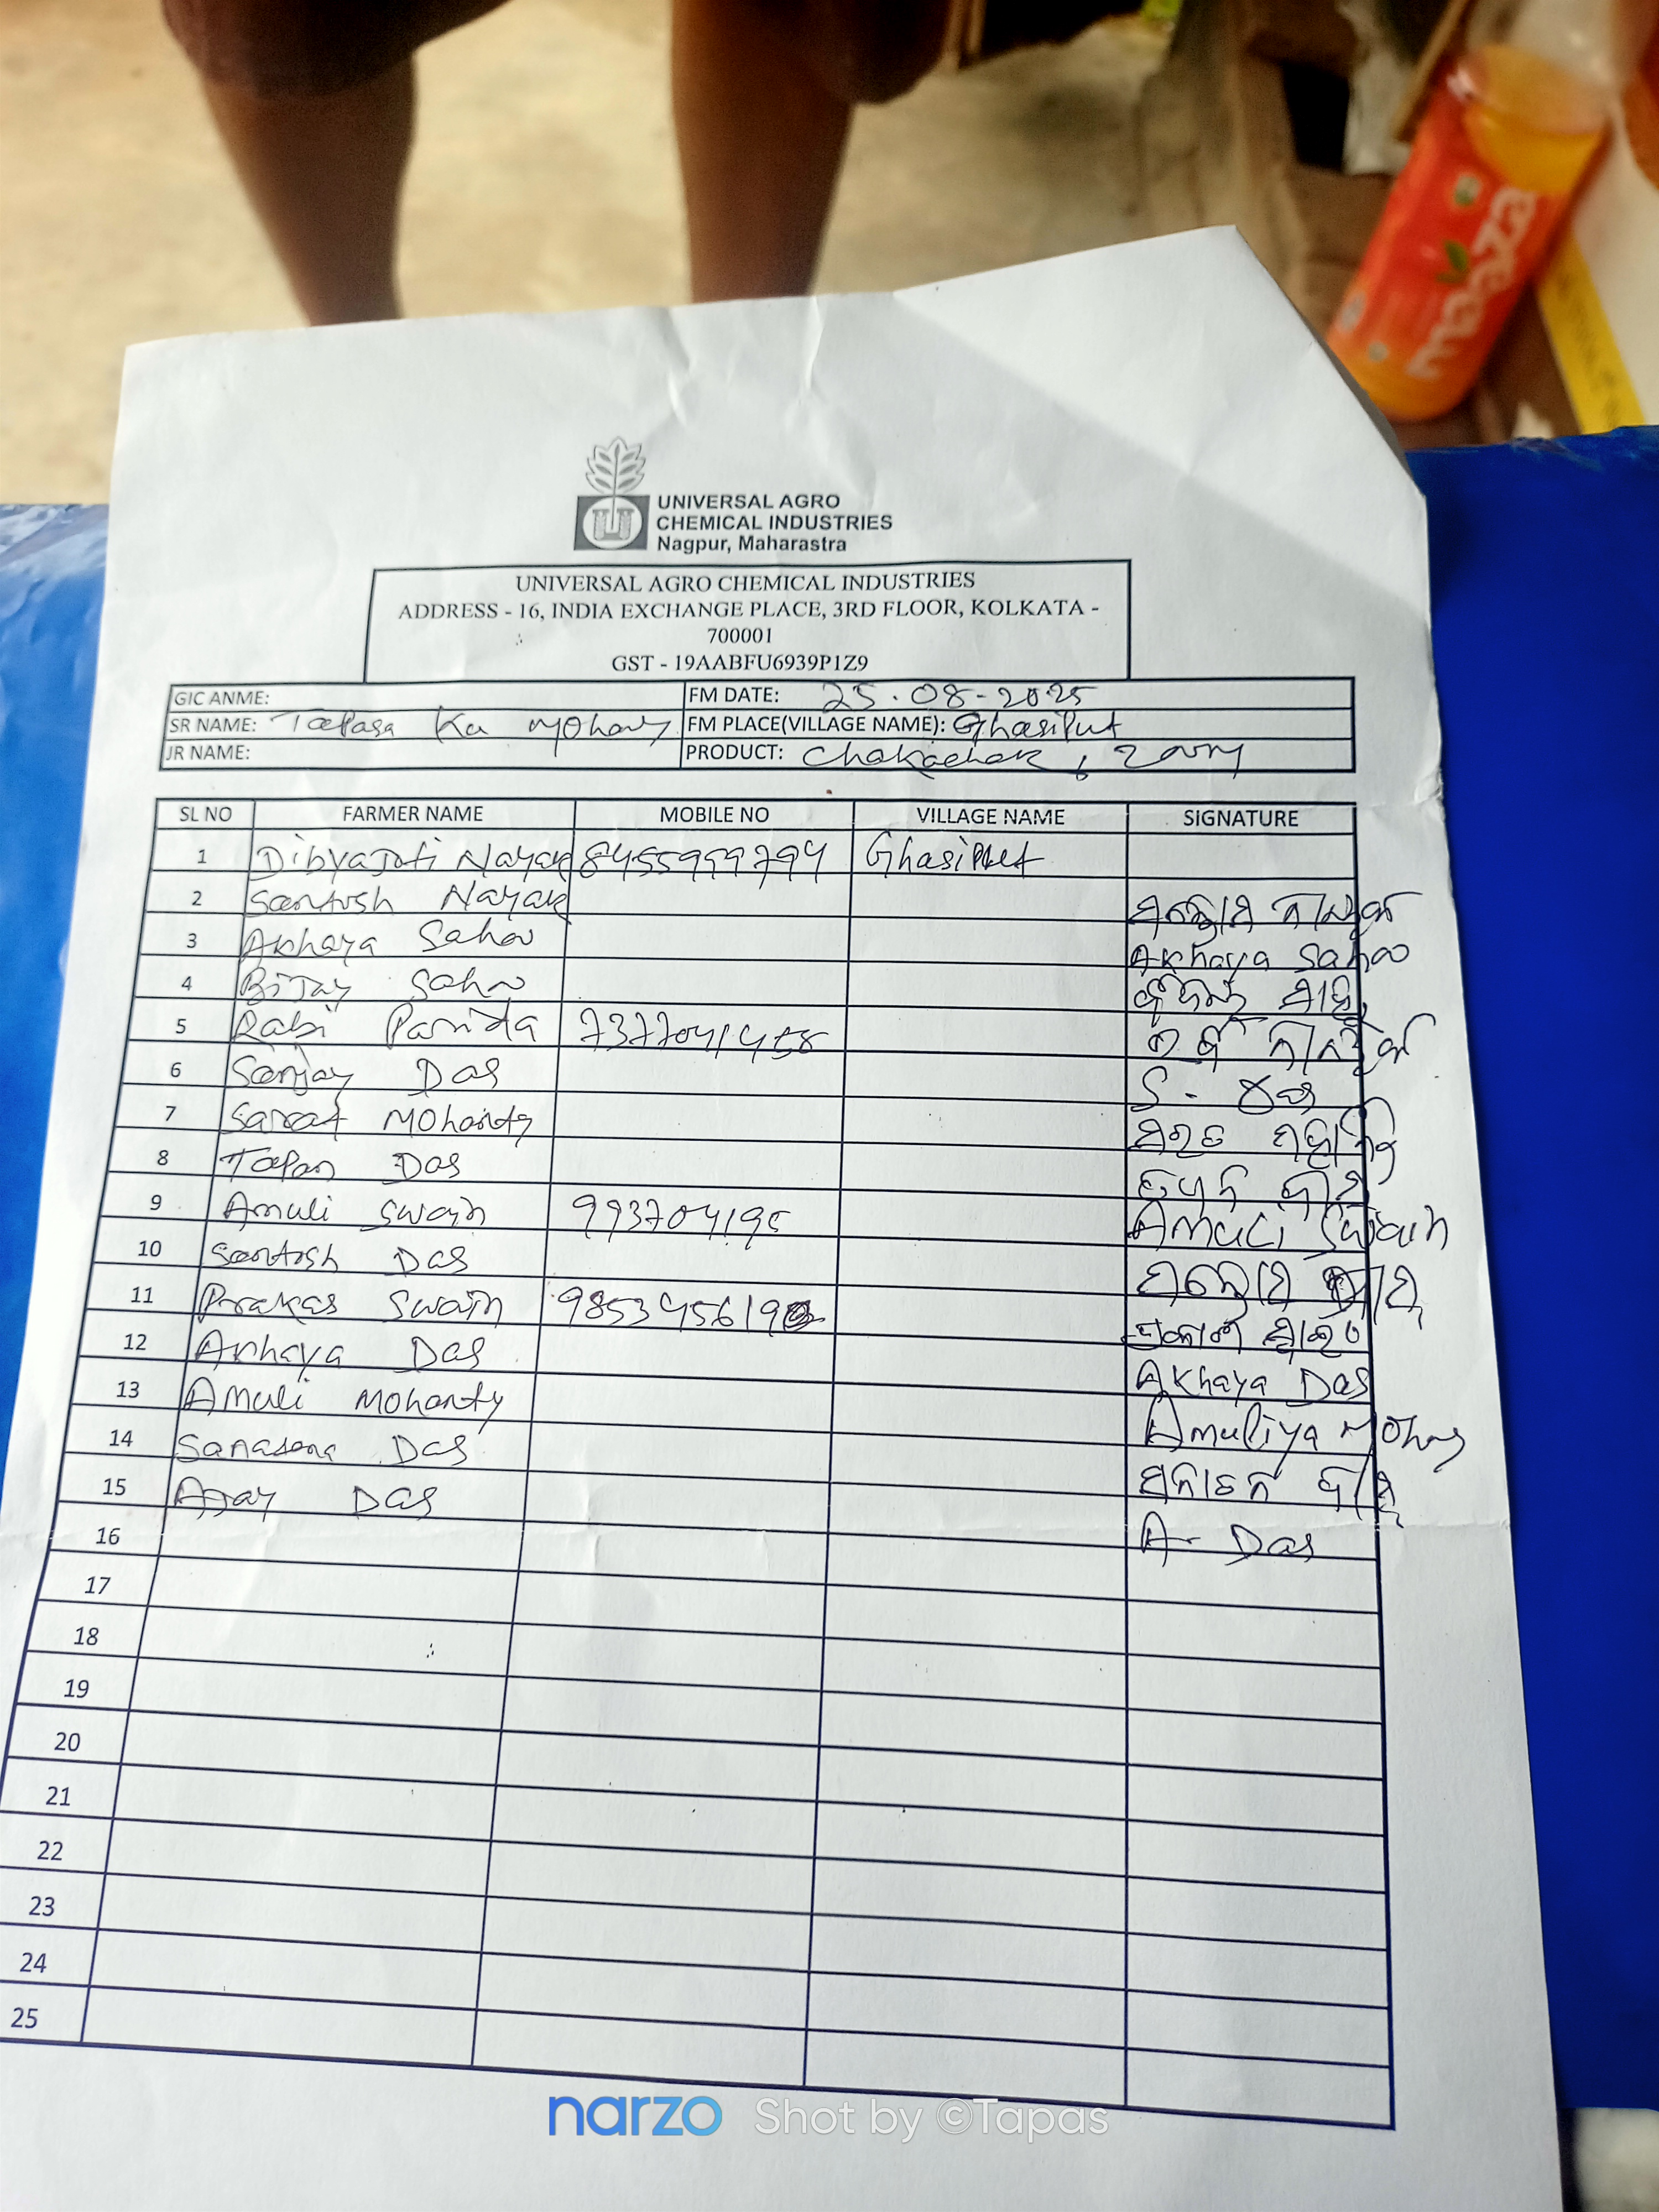 maaza
UNIVERSAL AGRO
CHEMICAL INDUSTRIES
Nagpur, Maharastra
UNIVERSAL AGRO CHEMICAL INDUSTRIES
ADDRESS - 16, INDIA EXCHANGE PLACE, 3RD FLOOR, KOLKATA -
700001
GST - 19AABFU6939P1Z9
GIC ANME: FM DATE: 25-08-2025
SR NAME: Tapasa Ku Mohany FM PLACE(VILLAGE NAME): Ghasiput
JR NAME: PRODUCT: Chakachak,
SL NO FARMER NAME MOBILE NO VILLAGE NAME SIGNATURE
1 Dibyajoti Nayak 8455999794 Ghasiput
2 Santosh Nayak ସନ୍ତୋଷ ନାୟକ
3 Akhaya Sahoo Akhaya Sahoo
4 Bijay Sahoo ବିଜୟ ସାହୁ
5 Rabi Parida 7377041458 ରବି ନାୟକ
6 Sanjay Das S. ଦାସ
7 Sarat Mohanty ଶରତ ମହାନ୍ତି
8 Tapan Das ତପନ ଦାସ
9 Amuli Swain 993704195 Amuli Swain
10 Santosh Das ସନ୍ତୋଷ ଦାସ
11 Prakas Swain ପ୍ରକାଶ ସ୍ୱାଇଁ
12 Akhaya Das Akhaya Das
13 Amuli Mohanty Amuliya Mohny
14 Sanasana Das ସନାତନ ଦାସ
15 Ajay Das A- Das
16
17
18
19
20
21
22
23
24
25
narzo Shot by ©Tapas